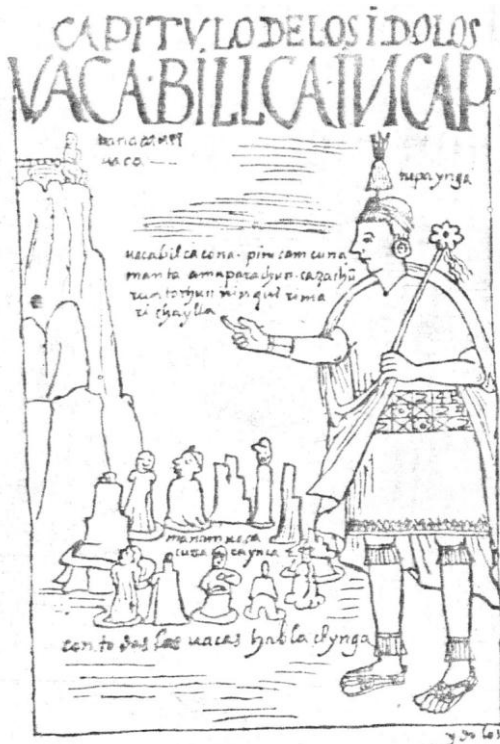 CAPITVLO DE LOS ÍDOLOS
VACA·BÍLLCA·ÍNCAP
uaca
tupa ynga
uacabilcacona · pim camcuna
manta ama parachun cazachũ
runtochun ninqui rima
ri chaylla
manam noca
cunacho caynca
con todos las uacas habla el ynga